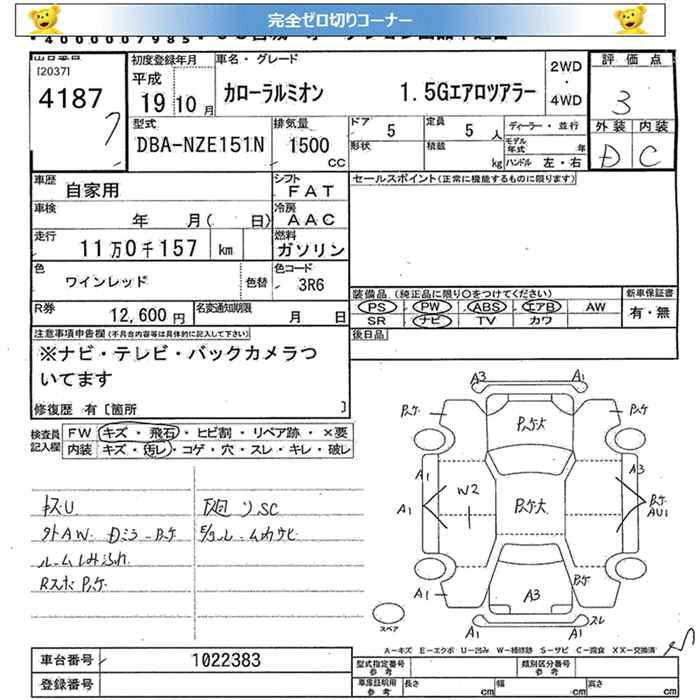 完全ゼロ切りコーナー
4000007985
[2037]
4187
初度登録年月
平成
19年10月
車名・グレード
カローラルミオン 1.5Gエアロツアラー
2WD
・
4WD
評価点
3
外装 内装
D C
型式
DBA-NZE151N
排気量
1500
CC
ドア 5
定員 5 人
形状
積載 kg
ディーラー・並行
モデル年式 年
ハンドル 左・右
車歴
自家用
シフト
FAT
車検
年 月( 日)
冷房
AAC
走行
11万0千157 km
燃料
ガソリン
色
ワインレッド
色替
色コード
3R6
R券
12,600円
名変通知期限
月 日
セールスポイント(正常に機能するものに限ります)
装備品 (純正品に限り〇をつけてください)
新車保証書
PS PW ABS エアB AW
SR ナビ TV カワ
有・無
後日品
注意事項申告欄(不具合内容等は具体的に記入して下さい)
※ナビ・テレビ・バックカメラつ
いてます
修復歴 有〔箇所 〕
検査員記入欄
FW キズ・飛石・ヒビ割・リペア跡・×要
内装 キズ・汚レ・コゲ・穴・スレ・キレ・破レ
キズU
外AW Dミラ-Pケ
ルームしみ
Rスポ Pケ
SC
A3 A1
Pケ Pケ
Pケ大
A1 A3
W2 Pケ大 Pケ
A1 AU1
Pケ
A1 A3
スペア
A1 A1 スレ
A-キズ E-エクボ U-凹み W-補修跡 S-サビ C-腐食 XX-交換済
車台番号 1022383
登録番号
型式指定番号 参考
類別区分番号 参考
車庫証明用 参考
長さ cm 幅 cm 高さ cm